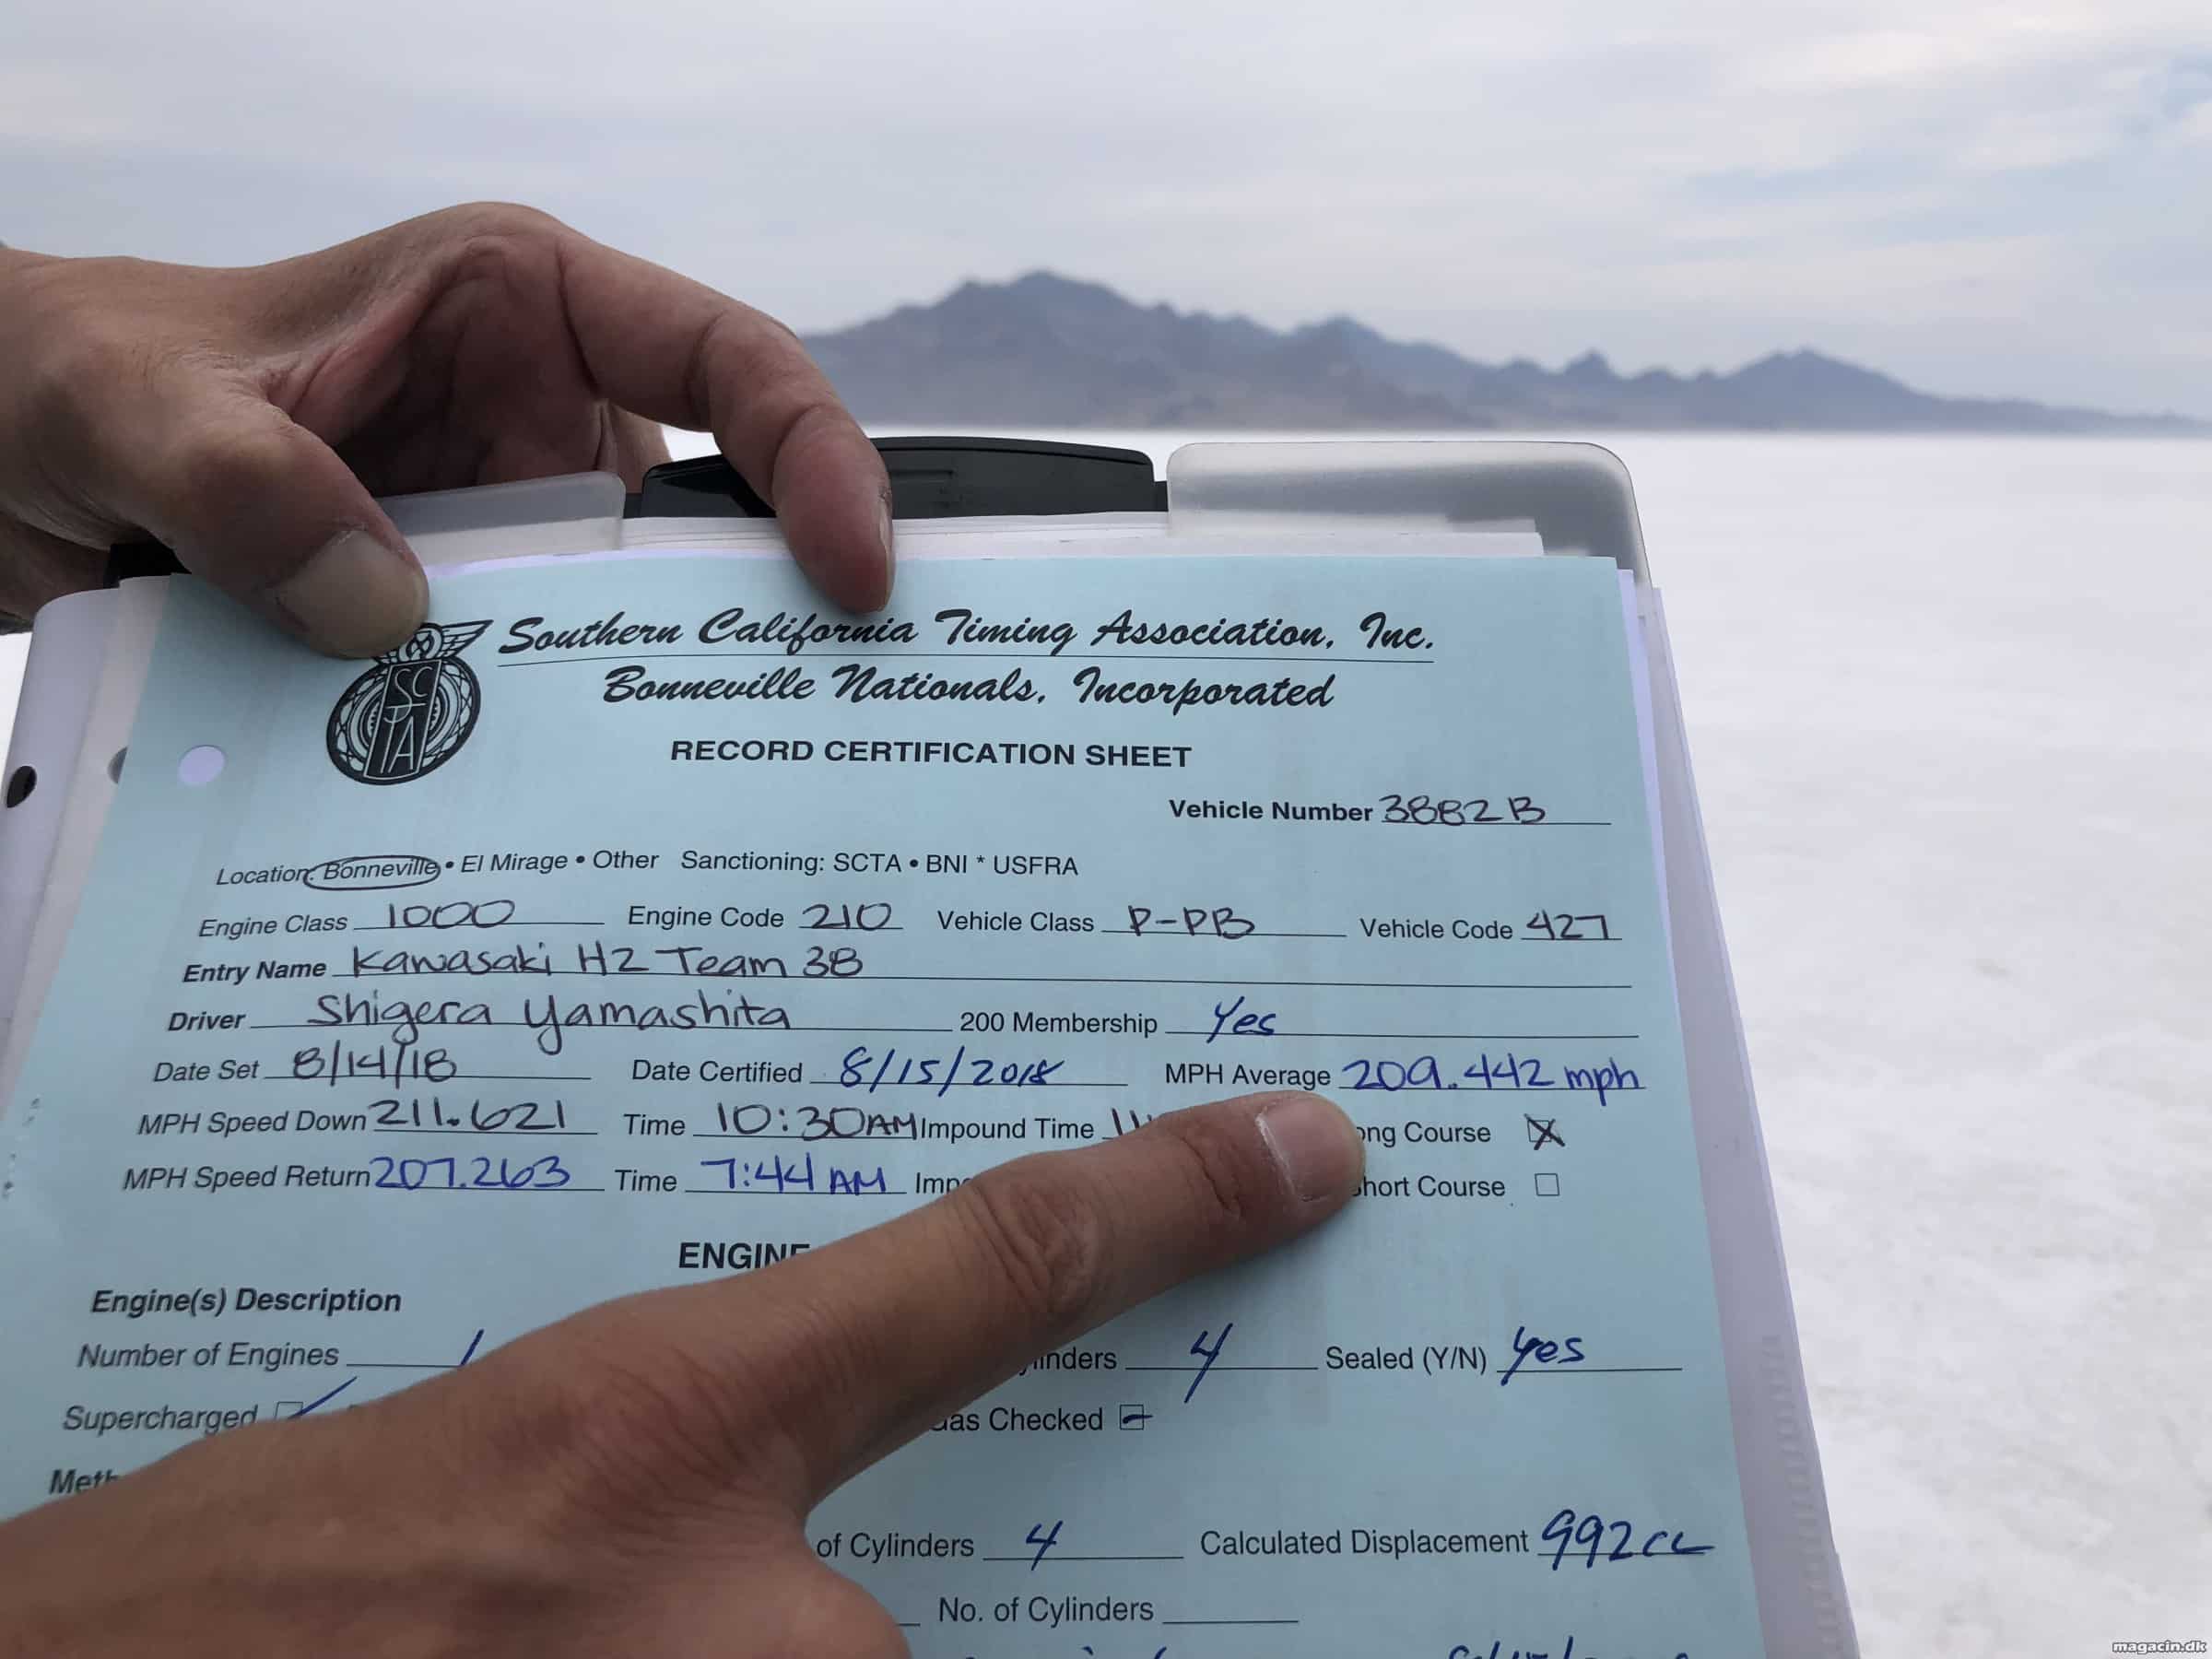 Southern California Timing Association, Inc.
Bonneville Nationals, Incorporated
SCTA
RECORD CERTIFICATION SHEET
Vehicle Number 3882B
Location: Bonneville • El Mirage • Other Sanctioning: SCTA • BNI * USFRA
Engine Class 1000 Engine Code 210 Vehicle Class P-PB Vehicle Code 427
Entry Name Kawasaki H2 Team 38
Driver Shigera Yamashita 200 Membership Yes
Date Set 8/14/18 Date Certified 8/15/2018 MPH Average 209.442 mph
MPH Speed Down 211.621 Time 10:30AM Impound Time Course
MPH Speed Return 207.263 Time 7:44 AM Course
Engine(s) Description
Number of Engines 1 4 Sealed (Y/N) Yes
Supercharged Checked
of Cylinders 4 Calculated Displacement 992cc
No. of Cylinders
magacin.dk